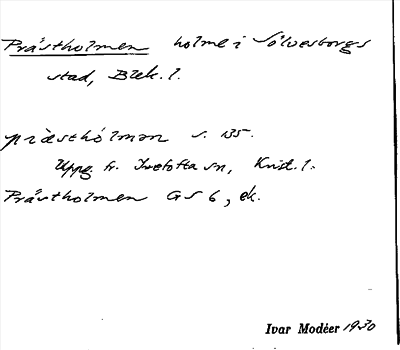 Prästholmen holme i Sölvesborgs
stad, Blek. l.
præsthòlmən s. 135.
Uppg. fr. Ivetofta sn, Krist. l.
Prästholmen GS 6, ek.
Ivar Modéer 1930